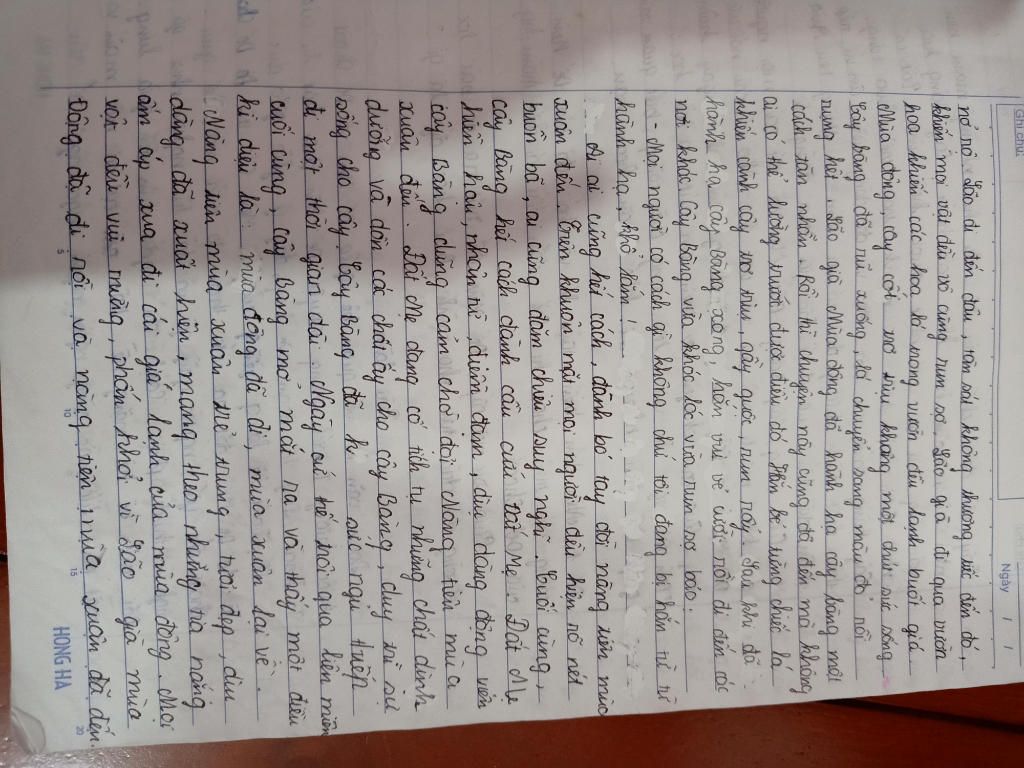 Ghi chú
Ngày / /
nó nó. Lão đi đến đâu, tàn sát không thương tiếc đến đó,
khiến mọi vật đều vô cùng run sợ. Lão già đi qua vườn
hoa khiến các hoa lá trong vườn đều lạnh buốt giá.
Mùa đông, cây cối xơ xịu không một chút sức sống.
Cây bàng đã rủ xuống, lá chuyển sang màu đỏ rồi
rụng hết. Lão già Mùa đông đã hành hạ cây bàng một
cách tàn nhẫn. Rồi thì chuyện này cũng đã đến mà không
ai có thể lường trước được điều đó. Hắn bẻ từng chiếc lá
khiến cành cây xơ xíu, gầy guộc, run rẩy. Sau khi đã
hành hạ cây bàng xong, hắn vui vẻ cười rồi đi đến các
nơi khác. Cây bàng vừa khóc lóc vừa run sợ bảo:
- Mọi người có cách gì không chứ tôi đang bị hắn ta
hành hạ, khổ lắm!
Ai ai cũng hết cách, đành bó tay đợi nàng tiên mùa
xuân đến. Trên khuôn mặt mọi người đều hiện rõ nét
buồn bã, ai cũng đăm chiêu suy nghĩ. Cuối cùng,
cây Bàng hết cách đành cầu cứu Đất Mẹ. Đất Mẹ
hiền hậu, nhân từ, điềm đạm, dịu dàng động viên
cây Bàng dũng cảm chờ đợi Nàng tiên mùa
xuân đến. Đất Mẹ đang cố tích tụ những chất dinh
dưỡng và dồn cái chất ấy cho cây Bàng, duy trì sự
sống cho cây. Cây Bàng đã hi sức ngủ thiếp
đi một thời gian dài. Ngày cứ thế trôi qua liên miên
cuối cùng, cây bàng mở mắt ra và thấy một điều
kì diệu là: mùa đông đã đi, mùa xuân lại về.
Nàng tiên mùa xuân trẻ trung, tươi đẹp, dịu
dàng đã xuất hiện, mang theo những tia nắng
ấm áp xua đi cái giá lạnh của mùa đông. Mọi
vật đều vui mừng, phấn khởi vì Lão già mùa
Đông đã đi rồi và nàng tiên mùa xuân đã đến.
5 10 15 20
HONG HA